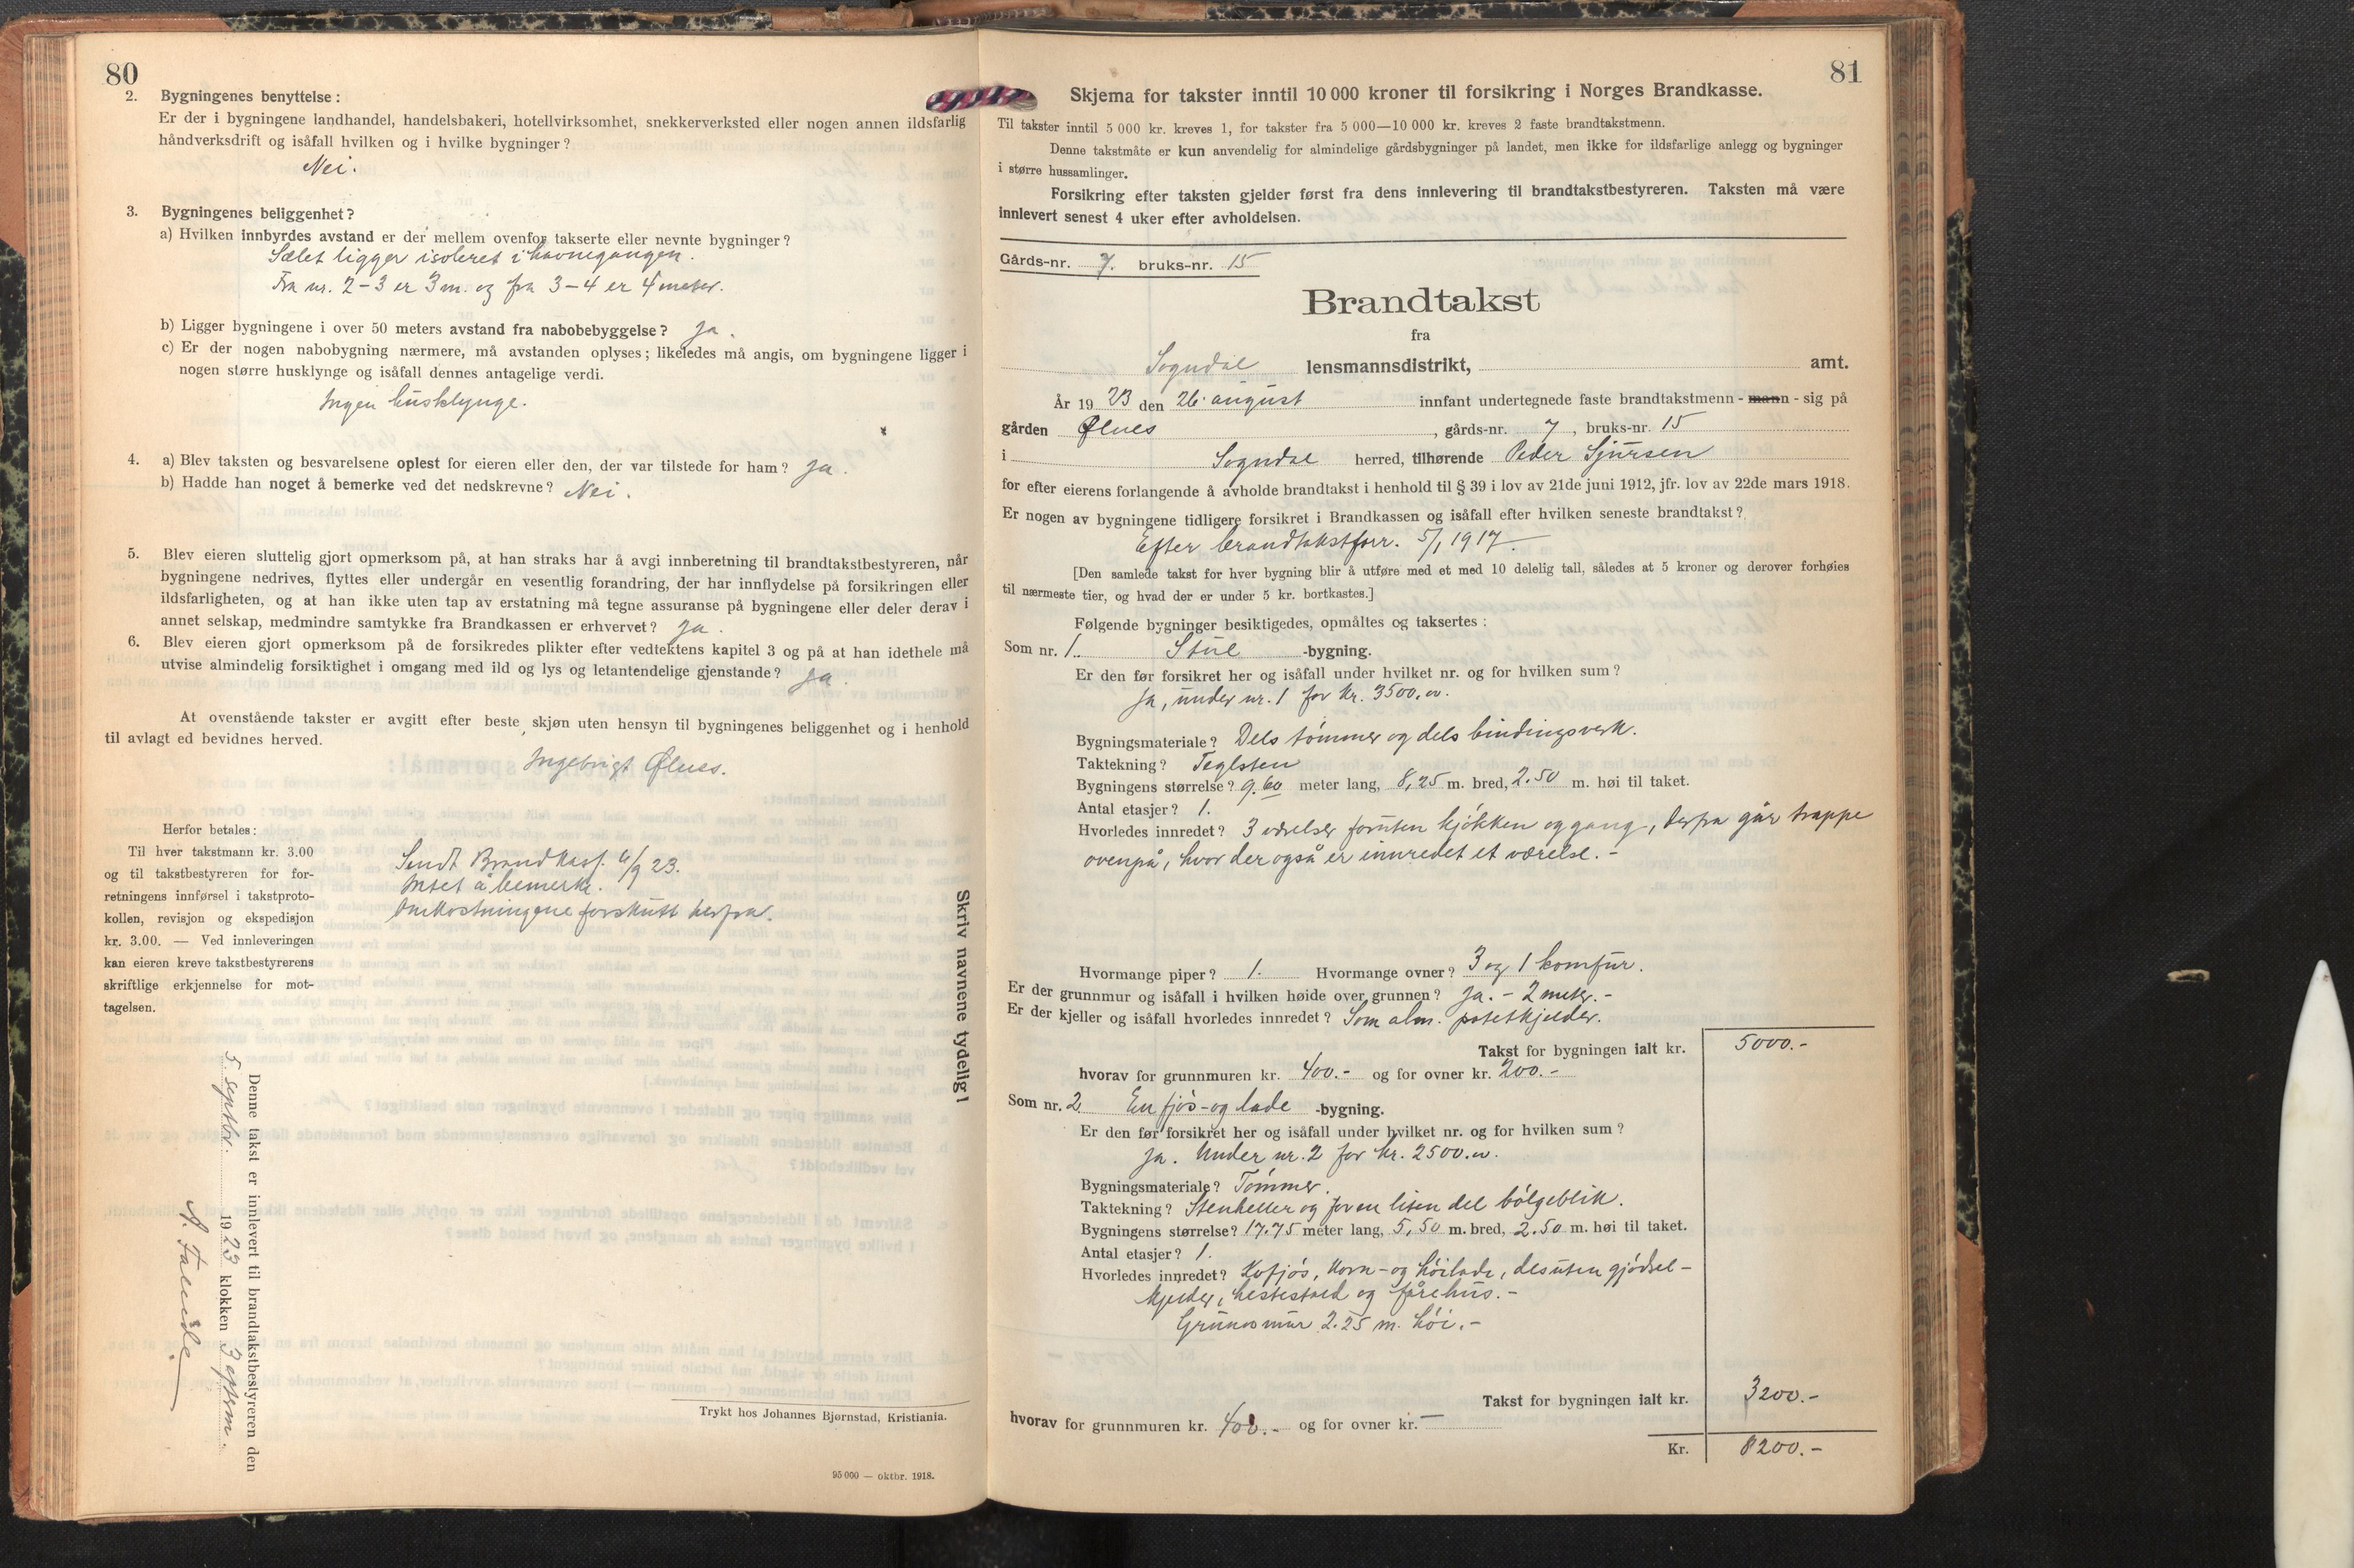 80
2. Bygningenes benyttelse:
Er der i bygningene landhandel, handelsbakeri, hotellvirksomhet, snekkerverksted eller nogen annen ildsfarlig
håndverksdrift og isåfall hvilken og i hvilke bygninger?
Nei.
3. Bygningenes beliggenhet?
a) Hvilken innbyrdes avstand er der mellem ovenfor takserte eller nevnte bygninger?
Sælet ligger isoleret i havnegangen.
Fra nr. 2-3 er 3 m. og fra 3-4 er 4 meter.
b) Ligger bygningene i over 50 meters avstand fra nabobebyggelse? Ja.
c) Er der nogen nabobygning nærmere, må avstanden oplyses; likeledes må angis, om bygningene ligger i
nogen større husklynge og isåfall dennes antagelige verdi.
Ingen husklynge.
4. a) Blev taksten og besvarelsene oplest for eieren eller den, der var tilstede for ham? Ja.
b) Hadde han noget å bemerke ved det nedskrevne? Nei.
5. Blev eieren sluttelig gjort opmerksom på, at han straks har å avgi innberetning til brandtakstbestyreren, når
bygningene nedrives, flyttes eller undergår en vesentlig forandring, der har innflydelse på forsikringen eller
ildsfarligheten, og at han ikke uten tap av erstatning må tegne assuranse på bygningene eller deler derav i
annet selskap, medmindre samtykke fra Brandkassen er erhvervet? Ja.
6. Blev eieren gjort opmerksom på de forsikredes plikter efter vedtektens kapitel 3 og på at han idethele må
utvise almindelig forsiktighet i omgang med ild og lys og letantendelige gjenstande? Ja.
At ovenstående takster er avgitt efter beste skjøn uten hensyn til bygningenes beliggenhet og i henhold
til avlagt ed bevidnes herved.
Ingebrigt Ølnes.
Herfor betales:
Til hver takstmann kr. 3.00
og til takstbestyreren for for-
retningens innførsel i takstproto-
kollen, revisjon og ekspedisjon
kr. 3.00. — Ved innleveringen
kan eieren kreve takstbestyrerens
skriftlige erkjennelse for mot-
tagelsen.
Sendt Brandkass. 6/9 23.
Intet å bemerke.
Omkostningene forskutt herfra.
Skriv navnene tydelig!
Denne takst er innlevert til brandtakstbestyreren den
5. septbr. 1923 klokken 3 efterm.
Trykt hos Johannes Bjørnstad, Kristiania.
95 000 — oktbr. 1918.
81
Skjema for takster inntil 10 000 kroner til forsikring i Norges Brandkasse.
Til takster inntil 5 000 kr. kreves 1, for takster fra 5 000—10 000 kr. kreves 2 faste brandtakstmenn.
Denne takstmåte er kun anvendelig for almindelige gårdsbygninger på landet, men ikke for ildsfarlige anlegg og bygninger
i større hussamlinger.
Forsikring efter taksten gjelder først fra dens innlevering til brandtakstbestyreren. Taksten må være
innlevert senest 4 uker efter avholdelsen.
Gårds-nr. 7. bruks-nr. 15
Brandtakst
fra
Sogndal lensmannsdistrikt, amt.
År 1923 den 26. august innfant undertegnede faste brandtakstmenn - mann - sig på
gården Ølnes, gårds-nr. 7, bruks-nr. 15
i Sogndal herred, tilhørende Peder Sjursen
for efter eierens forlangende å avholde brandtakst i henhold til § 39 i lov av 21de juni 1912, jfr. lov av 22de mars 1918.
Er nogen av bygningene tidligere forsikret i Brandkassen og isåfall efter hvilken seneste brandtakst?
Efter brandtakstforr. 5/1 1917.
[Den samlede takst for hver bygning blir å utføre med et med 10 delelig tall, således at 5 kroner og derover forhøies
til nærmeste tier, og hvad der er under 5 kr. bortkastes.]
Følgende bygninger besiktigedes, opmåltes og taksertes:
Som nr. 1. Stue -bygning.
Er den før forsikret her og isåfall under hvilket nr. og for hvilken sum?
Ja, under nr. 1 for kr. 3500.00.
Bygningsmateriale? Dels tømmer og dels bindingsverk.
Taktekning? Teglsten
Bygningens størrelse? 9.60 meter lang, 8,25 m. bred, 2.50 m. høi til taket.
Antal etasjer? 1.
Hvorledes innredet? 3 værelser foruten kjøkken og gang, derfra går trappe
ovenpå, hvor der også er innredet et værelse.-
Hvormange piper? 1. Hvormange ovner? 3 og 1 komfur.
Er der grunnmur og isåfall i hvilken høide over grunnen? Ja. - 2 meter.-
Er der kjeller og isåfall hvorledes innredet? Som alm. potetkjelder.
Takst for bygningen ialt kr. 5000.-
hvorav for grunnmuren kr. 400.- og for ovner kr. 200.-
Som nr. 2 En fjøs- og lade -bygning.
Er den før forsikret her og isåfall under hvilket nr. og for hvilken sum?
Ja. Under nr. 2 for kr. 2500.00.
Bygningsmateriale? Tømmer.
Taktekning? Stenheller og for en liten del bølgeblik.
Bygningens størrelse? 17.75 meter lang, 5,50 m. bred, 2.50 m. høi til taket.
Antal etasjer? 1.
Hvorledes innredet? Kufjøs, korn- og høilade, desuten gjødsel-
kjelder, hestestald og fårehus.-
Grunnmur 2.25 m. høi.-
Takst for bygningen ialt kr. 3200.-
hvorav for grunnmuren kr. 400.- og for ovner kr. —
Kr. 8200.-